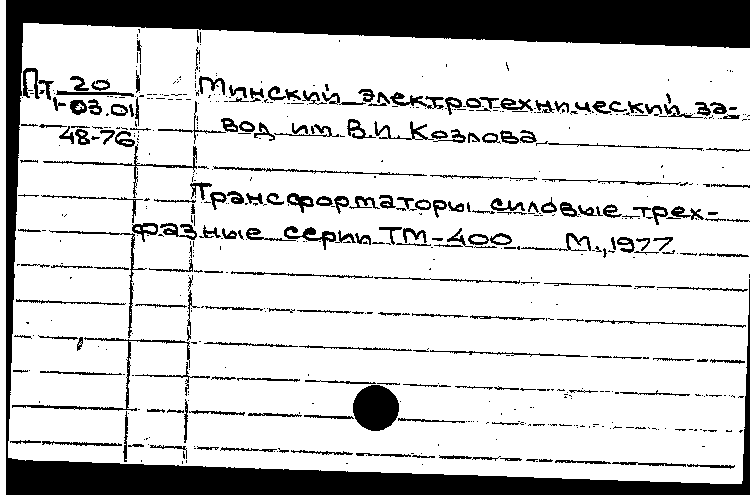 Пт 20
1-03.01
48-76
Минский электротехнический за-
вод им. В.И. Козлова
Трансформаторы силовые трех-
фазные серии ТМ-400. М., 1977